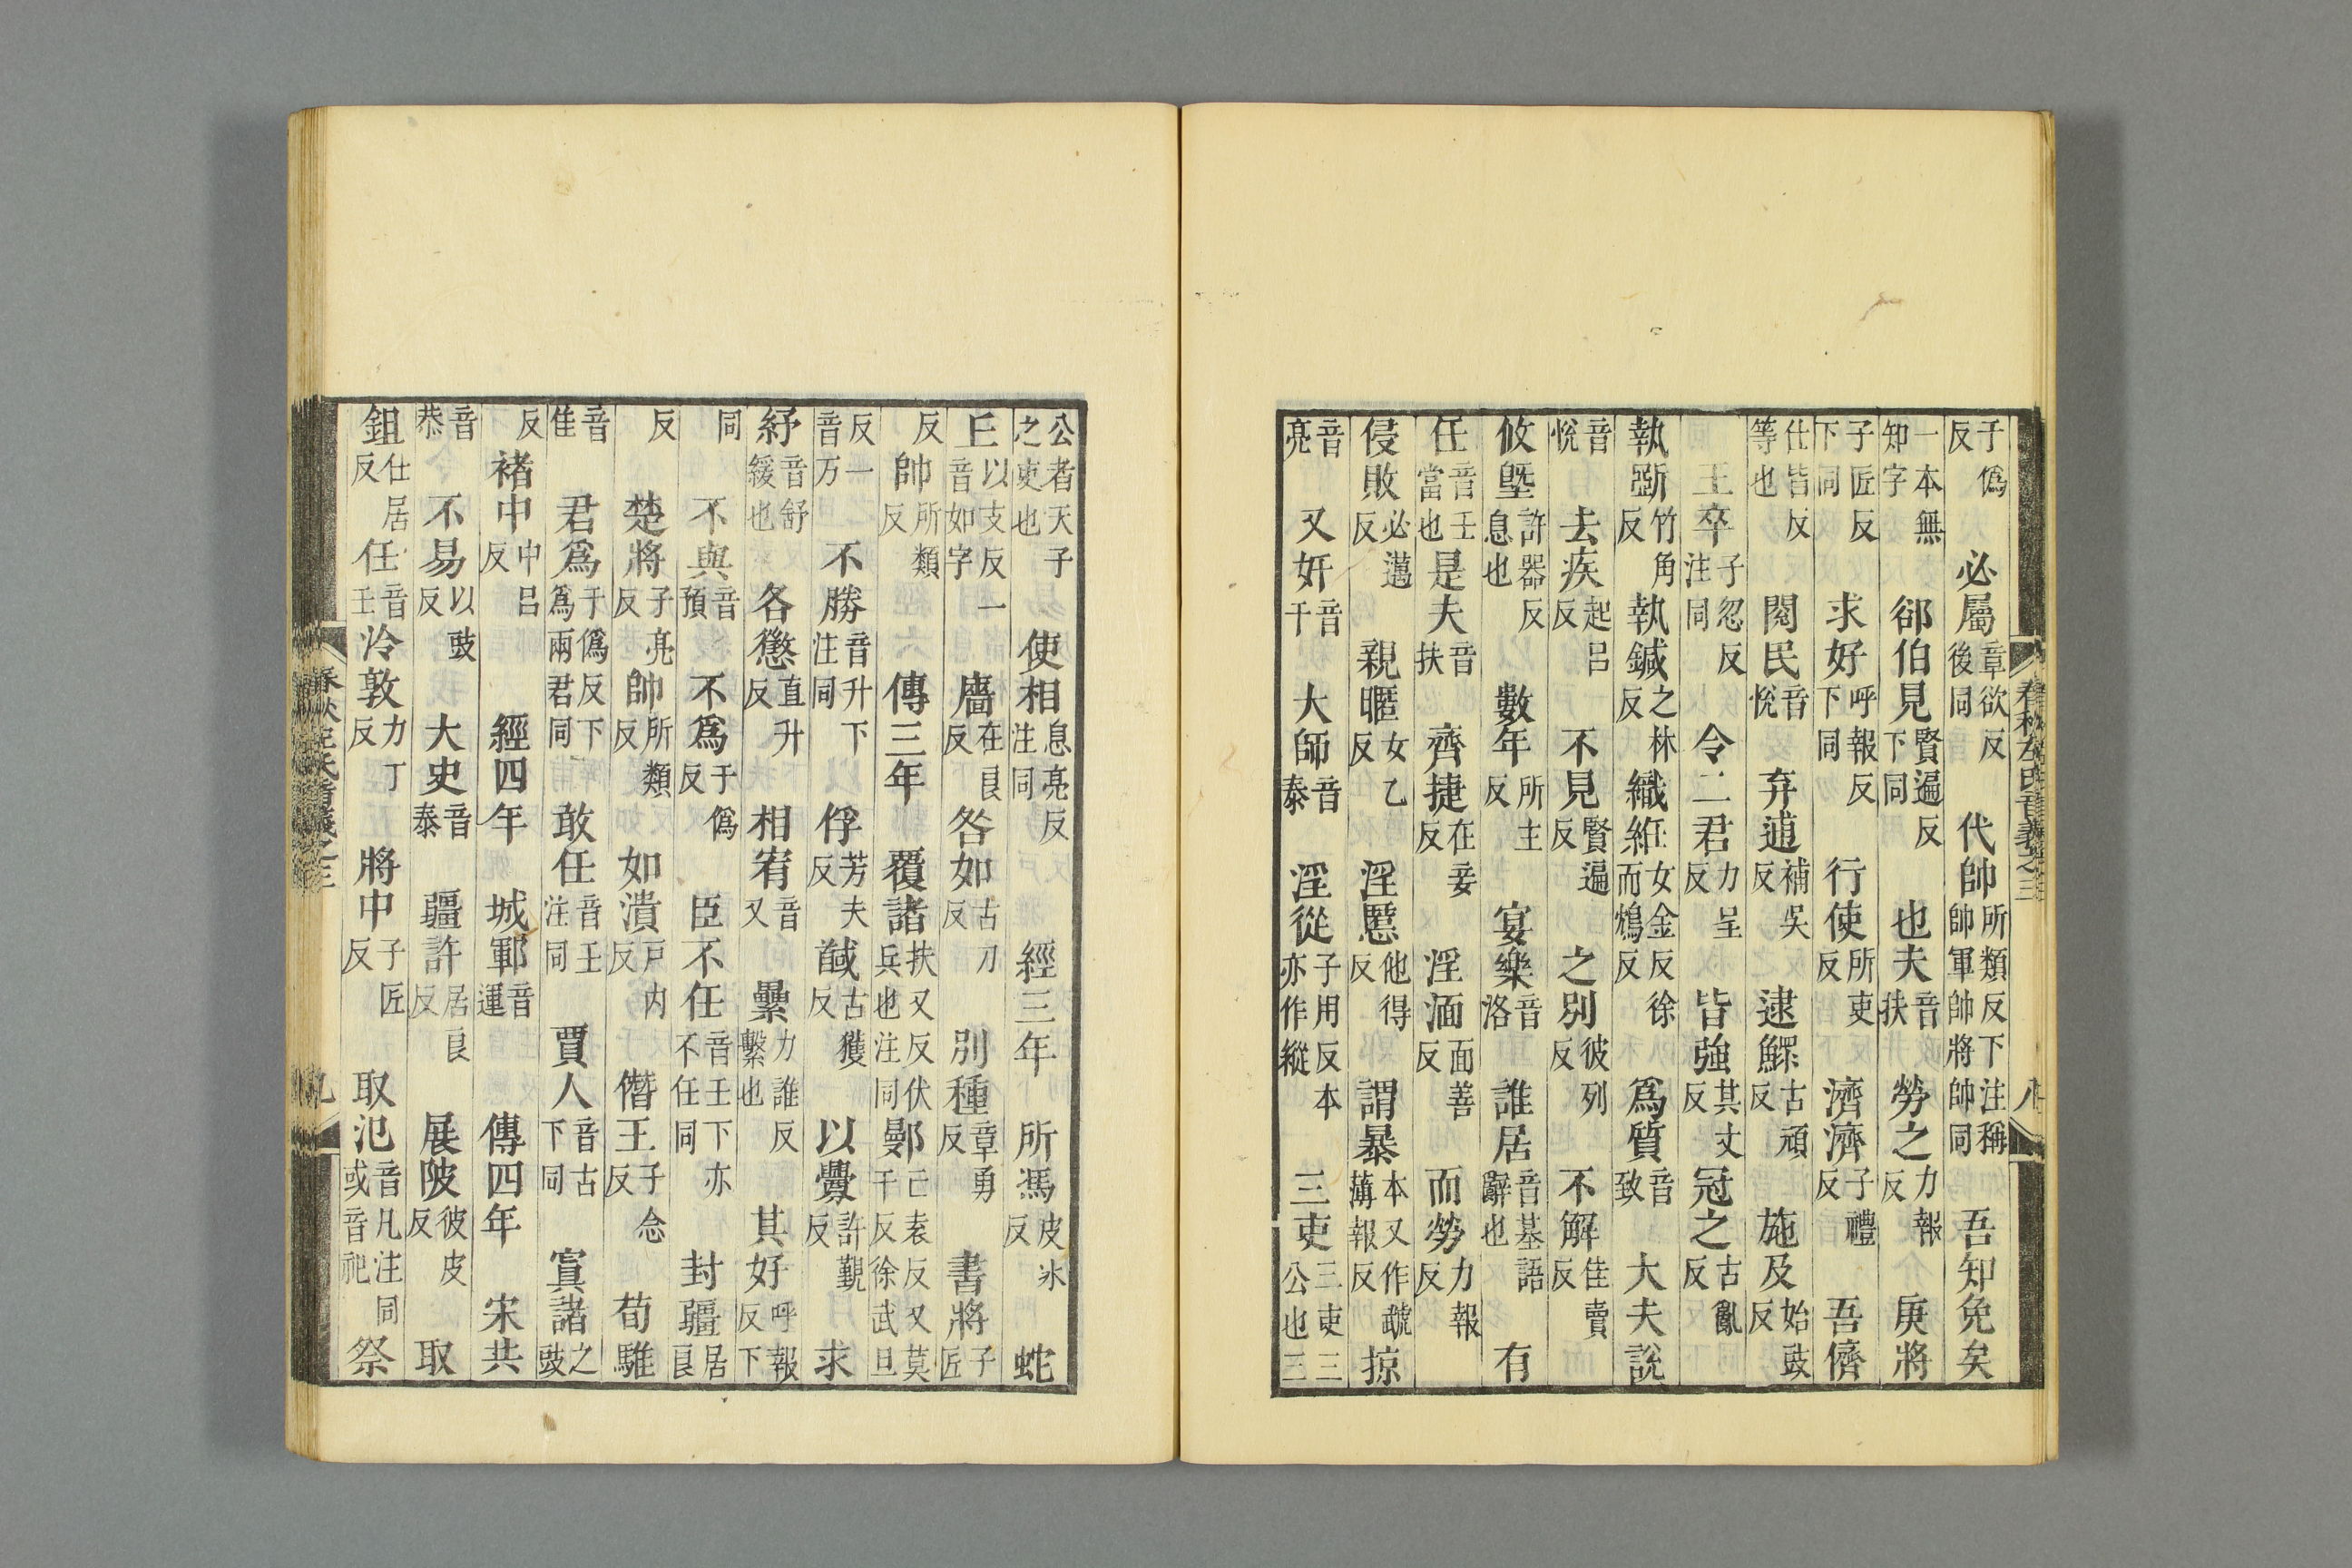 春秋左氏音義之三 八
于僞反 必屬章欲反後同 代帥所類反下注稱帥軍帥將帥同 吾知免矣
一本無知字 郤伯見賢遍反下同 也夫音扶 勞之力報反 庚將
子匠反下同 求好呼報反下同 行使所吏反 濟濟子禮反 吾儕
仕皆反等也 閱民音悅 弃逋補吳反 逮鰥古頑反 施及始豉反
王卒子忽反注同 令二君力呈反 皆強其丈反 冠之古亂反
執斲竹角反 執鍼之林反 織紝女金反徐而鴆反 爲質音致 大夫說
音悅 去疾起呂反 不見賢遍反 之別彼列反 不解佳賣反
攸墍許器反息也 數年所主反 宴樂音洛 誰居音基語辭也 有
任音壬當也 是夫音扶 齊捷在妾反 淫湎面善反 而勞力報反
侵敗必邁反 親暱女乙反 淫慝他得反 謂暴本又作虣薄報反 掠
音亮 又奸音干 大師音泰 淫從子用反本亦作縱 三吏三吏三公也三
公者天子之吏也 使相息亮反注同 經三年 所馮皮冰反 蛇
丘以支反一音如字 廧在良反 咎如古刀反 別種章勇反 書將子匠
反 帥所類反 傳三年 覆諸扶又反伏兵也注同 鄤亡袁反又莫干反徐武旦
反一音万 不勝音升下注同 俘芳夫反 馘古獲反 以釁許覲反 求
紓音舒緩也 各懲直升反 相宥音又 纍力誰反繫也 其好呼報反下
同 不與音預 不爲于僞反 臣不任音壬下亦不任同 封疆居良
反 楚將子亮反 帥所類反 如潰戶內反 僭王子念反 荀騅
音隹 君爲于僞反下爲兩君同 敢任音壬注同 賈人音古下同 寘諸之豉
反 褚中中呂反 經四年 城鄆音運 傳四年 宋共
音恭 不易以豉反 大史音泰 疆許居良反 展陂彼皮反 取
鉏仕居反 任音壬 泠敦力丁反 將中子匠反 取氾音凡注同或音祀 祭
春秋左氏音義之三 九